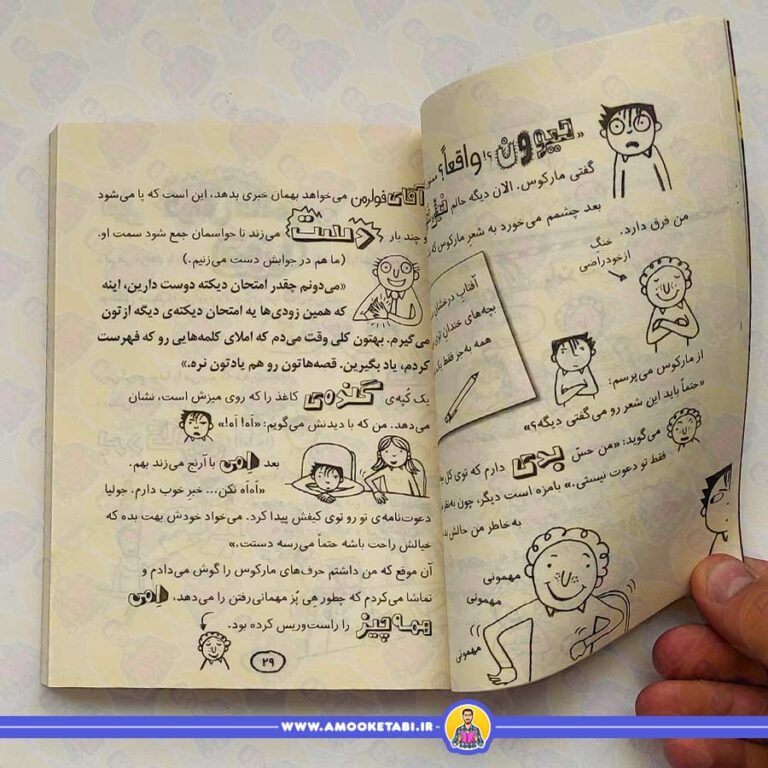 «حیوون؟! واقعاً؟
گفتی مارکوس. الان دیگه حالم
بعد چشمم می‌خورد به شعرِ مارکوس که
من فرق دارد.
خنگ
ازخودراضی
آفتابِ درخشان
بچه‌های خندان توی
همه به‌جز فقط یک
از مارکوس می‌پرسم:
«حتماً باید این شعر رو می‌گفتی دیگه؟»
می‌گوید: «من حسّ بدی دارم که توی کل
فقط تو دعوت نیستی.» بامزه است دیگر، چون به‌نظر
به‌خاطر من حالش بد
مهمونی
مهمونی
مهمونی
آقای فولرمن می‌خواهد بهمان خبری بدهد، این است که پا می‌شود
و چند بار دست می‌زند تا حواسمان جمع شود سمت او.
(ما هم در جوابش دست می‌زنیم.)
«می‌دونم چقدر امتحان دیکته دوست دارین، اینه
که همین زودی‌ها یه امتحان دیکته‌ی دیگه ازتون
می‌گیرم. بهتون کلی وقت می‌دم که املای کلمه‌هایی رو که فهرست
کردم، یاد بگیرین. قصه‌هاتون رو هم یادتون نره.»
یک کُپه‌ی گنده‌ی کاغذ را که روی میزش است، نشان
می‌دهد. من که با دیدنش می‌گویم: «اَه! اَه!»
بعد اِمی با آرنج می‌زند بهم.
«اَه‌اَه نکن... خبر خوب دارم. جولیا
دعوت‌نامه‌ی تو رو توی کیفش پیدا کرد. می‌خواد خودش بهت بده که
خیالش راحت باشه حتماً می‌رسه دستت.»
آن موقع که من داشتم حرف‌های مارکوس را گوش می‌دادم و
تماشا می‌کردم که چطور هِی پُز مهمانی‌رفتن را می‌دهد، اِمی
همه‌چیز را راست‌وریس کرده بود.
۲۹
WWW.AMOOKETABI.IR